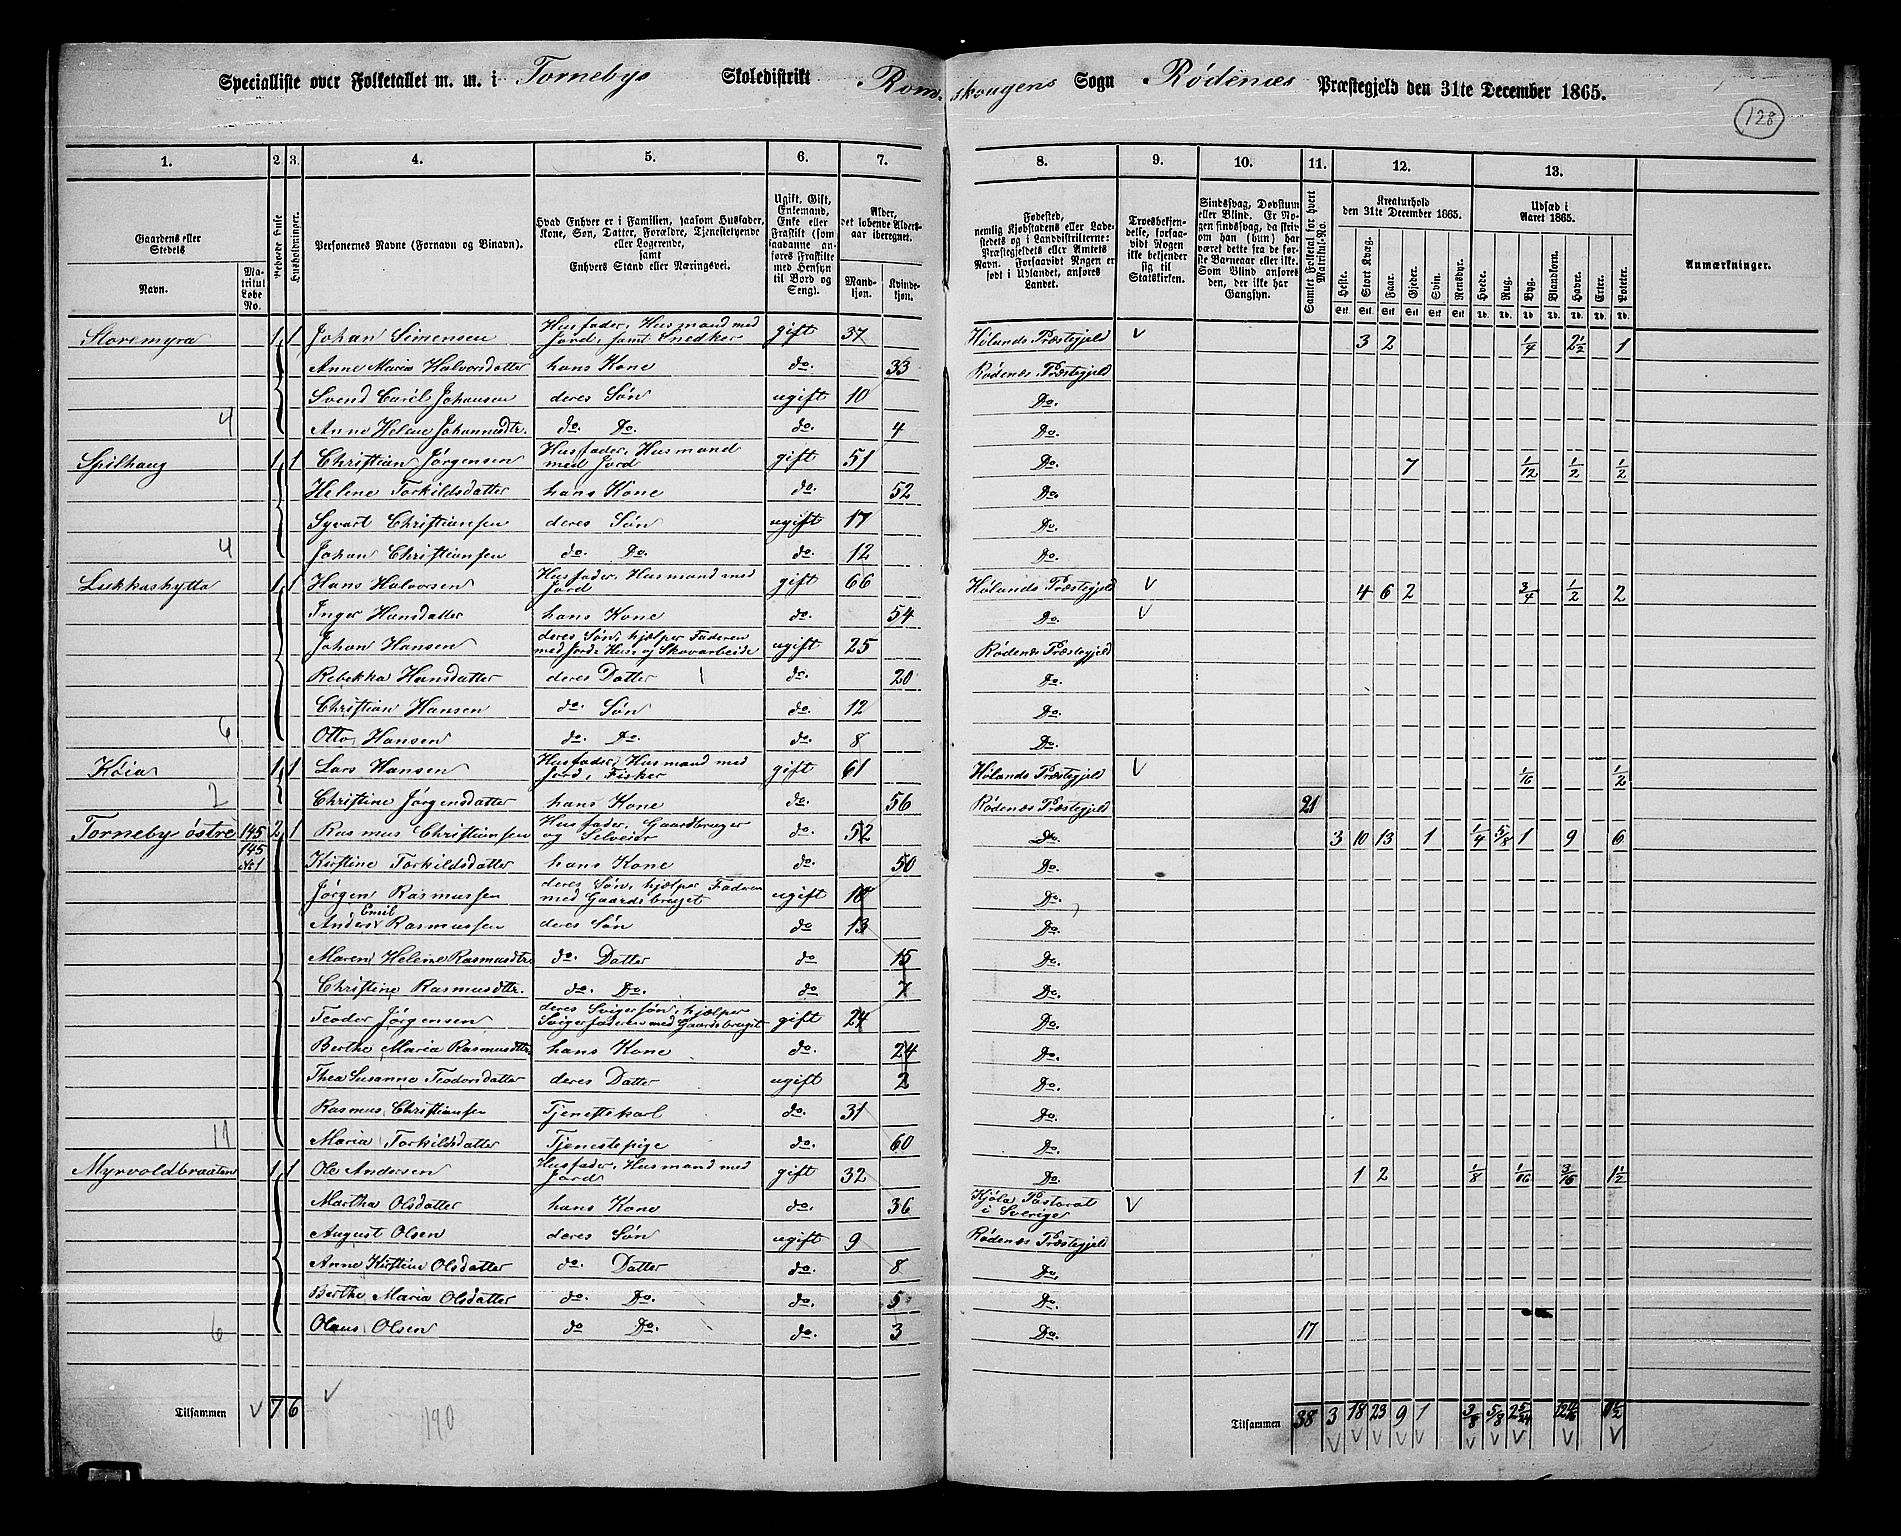 Specialliste over Folketallet m. m. i Tornebys Skoledistrikt Romskougens Sogn Rødenæs Præstegjeld den 31te December 1865.
128
1. 2. 3. 4. 5. 6. 7. 8. 9. 10. 11. 12. 13.
Gaardens eller Stedets Navn.
Matrikul Løbe No.
Beboede Huse
Husholdninger.
Personernes Navne (Fornavn og Binavn).
Hvad Enhver er i Familien, saasom Husfader, Kone, Søn, Datter, Forældre, Tjenestetyende eller Logerende, samt Enhvers Stand eller Næringsvei.
Ugift, Gift, Enkemand, Enke eller Fraskilt (som saadanne anføres Fraskilte med Hensyn til Bord og Seng).
Alder, det løbende Aldersaar iberegnet.
Mandkjøn. Kvindekjøn.
Fødested, nemlig Kjøbstadens eller Ladestedets og i Landdistrikterne: Præstegjeldets eller Amtets Navn. Forsaavidt Nogen er født i Udlandet, anføres Landet.
Troesbekjendelse, forsaavidt Nogen ikke bekjender sig til Statskirken.
Sindssvag, Døvstum eller Blind. Er Nogen sindssvag, da skriv om han (hun) har været dette fra de første Barneaar eller ikke. Som Blind anføres den, der ikke har Gangsyn.
Samlet Folketal for hvert Matrikul-No.
Kreaturhold den 31te December 1865.
Heste. Stort Kvæg. Faar. Gjeder. Svin. Rensdyr.
Udsæd i Aaret 1865.
Hvede. Rug. Byg. Blandkorn. Havre. Erter. Poteter.
Anmærkninger.
Storemyra 1 1 Johan Simensen Husfader, Husmand med Jord, samt Snedker gift 37 Hølands Præstegjeld V 3 2 1/4 2 1/2 1
Anne Maria Halvorsdatter hans Kone do. 33 Rødenæs Præstegjeld
Svend Carel Johansen deres Søn ugift 10 Do.
4 Anne Helene Johannesdtr. do. Do. do. 4 Do.
Spilhaug 1 1 Christian Jørgensen Husfader, Husmand med Jord gift 51 Do. 7 1/12 1/2 1/2
Helene Torkildsdatter hans Kone do. 52 Do.
Syvart Christiansen deres Søn ugift 17 Do.
4 Johan Christiansen do. Do. do. 12 Do.
Lukkashytta 1 1 Hans Halvorsen Husfader, Husmand med Jord gift 66 Hølands Præstegjeld V 4 6 2 3/4 1/2 2
Inger Hansdatter hans Kone do. 54 Do. V
Johan Hansen deres Søn, hjælper Faderen med Jords Huse og Skovarbeide ugift 25 Rødenæs Præstegjeld
Rebekka Hansdatter deres Datter do. 20 Do.
Christian Hansen do. Søn do. 12 Do.
6 Otto Hansen do. Do. do. 8 Do.
Køia 1 1 Lars Hansen Husfader, Husmand med Jord, Fisker gift 61 Hølands Præstegjeld V 1/16 1/2
2 Christine Jørgensdatter hans Kone do. 56 Rødenæs Præstegjeld 21
Torneby østre 145 2 1 Rasmus Christiansen Husfader, Gaardbruger og Selveier do. 52 Do. 3 10 13 1 1/4 5/8 1 9 6
145 No 1 Kirstine Torkildsdatter hans Kone do. 50 Do.
Jørgen Rasmussen deres Søn, hjælper Faderen med Gaardsbruget ugift 18 Do.
Anders Emil Rasmussen deres Søn do 13 Do.
Maren Helene Rasmusdtr. do. Datter do 15 Do.
Christine Rasmusdtr. do. Do. do 7 Do.
Teoder Jørgensen deres Svigersøn, hjælper Svigerfaderen med Gaardsbruget gift 24 Do.
Berthe Maria Rasmusdtr. hans Kone do. 24 Do.
Thea Susanne Teodorsdatter deres Datter ugift 2 Do.
Rasmus Christiansen Tjenestekarl do. 31 Do.
11 Maria Torkildsdatter Tjenestepige do. 60 Do.
Myrvoldbraaten 1 1 Ole Andersen Husfader, Husmand med Jord gift 32 Do. 1 2 1/8 1/16 3/16 1 1/2
Martha Olsdatter hans Kone do. 36 Kjøla Pastorat i Sverige V
August Olsen deres Søn ugift 9 Rødenæs Præstegjeld
Anne Kirstine Olsdatter do. Datter do. 8 Do.
Berthe Maria Olsdatter do. Do. do. 5 Do.
6 Olaus Olsen do Do. do. 3 Do. 17
Tilsammen V 7 6 V 190
Tilsammen 38 3 18 23 9 1 3/8 5/8 2 5/24